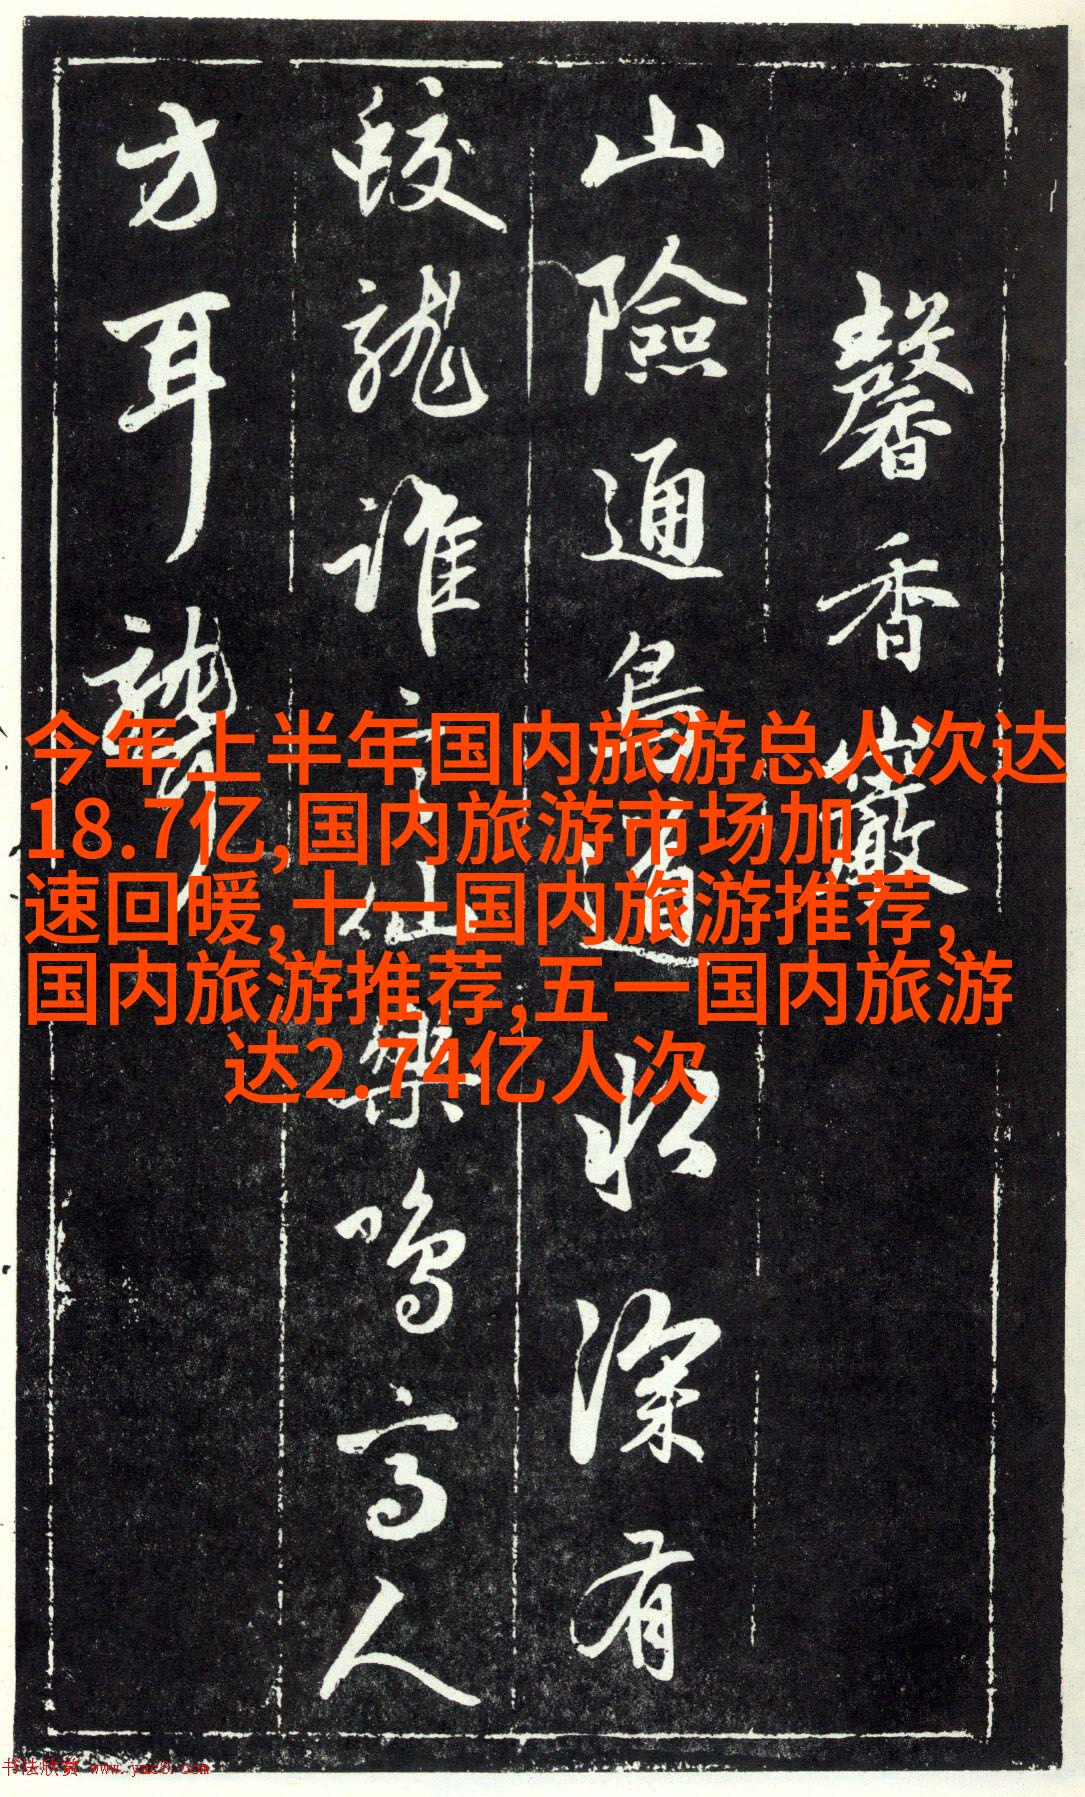 馨香巖
山險通鳥道水深有
蛟龍誰言仙樂鳴高人
方耳聾
今年上半年国内旅游总人次达
18.7亿,国内旅游市场加
速回暖,十一国内旅游推荐,
国内旅游推荐,五一国内旅游
达2.74亿人次
书法欣赏 www.yac8.com